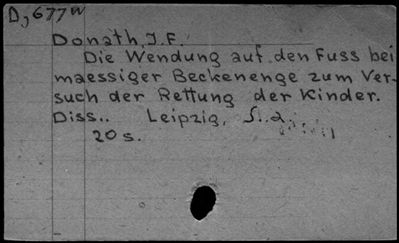 D, 677 w
Donath, J. F.
Die Wendung auf den Fuss bei
maessiger Beckenenge zum Ver-
such der Rettung der Kinder.
Diss.. Leipzig, S. a.
20 s.